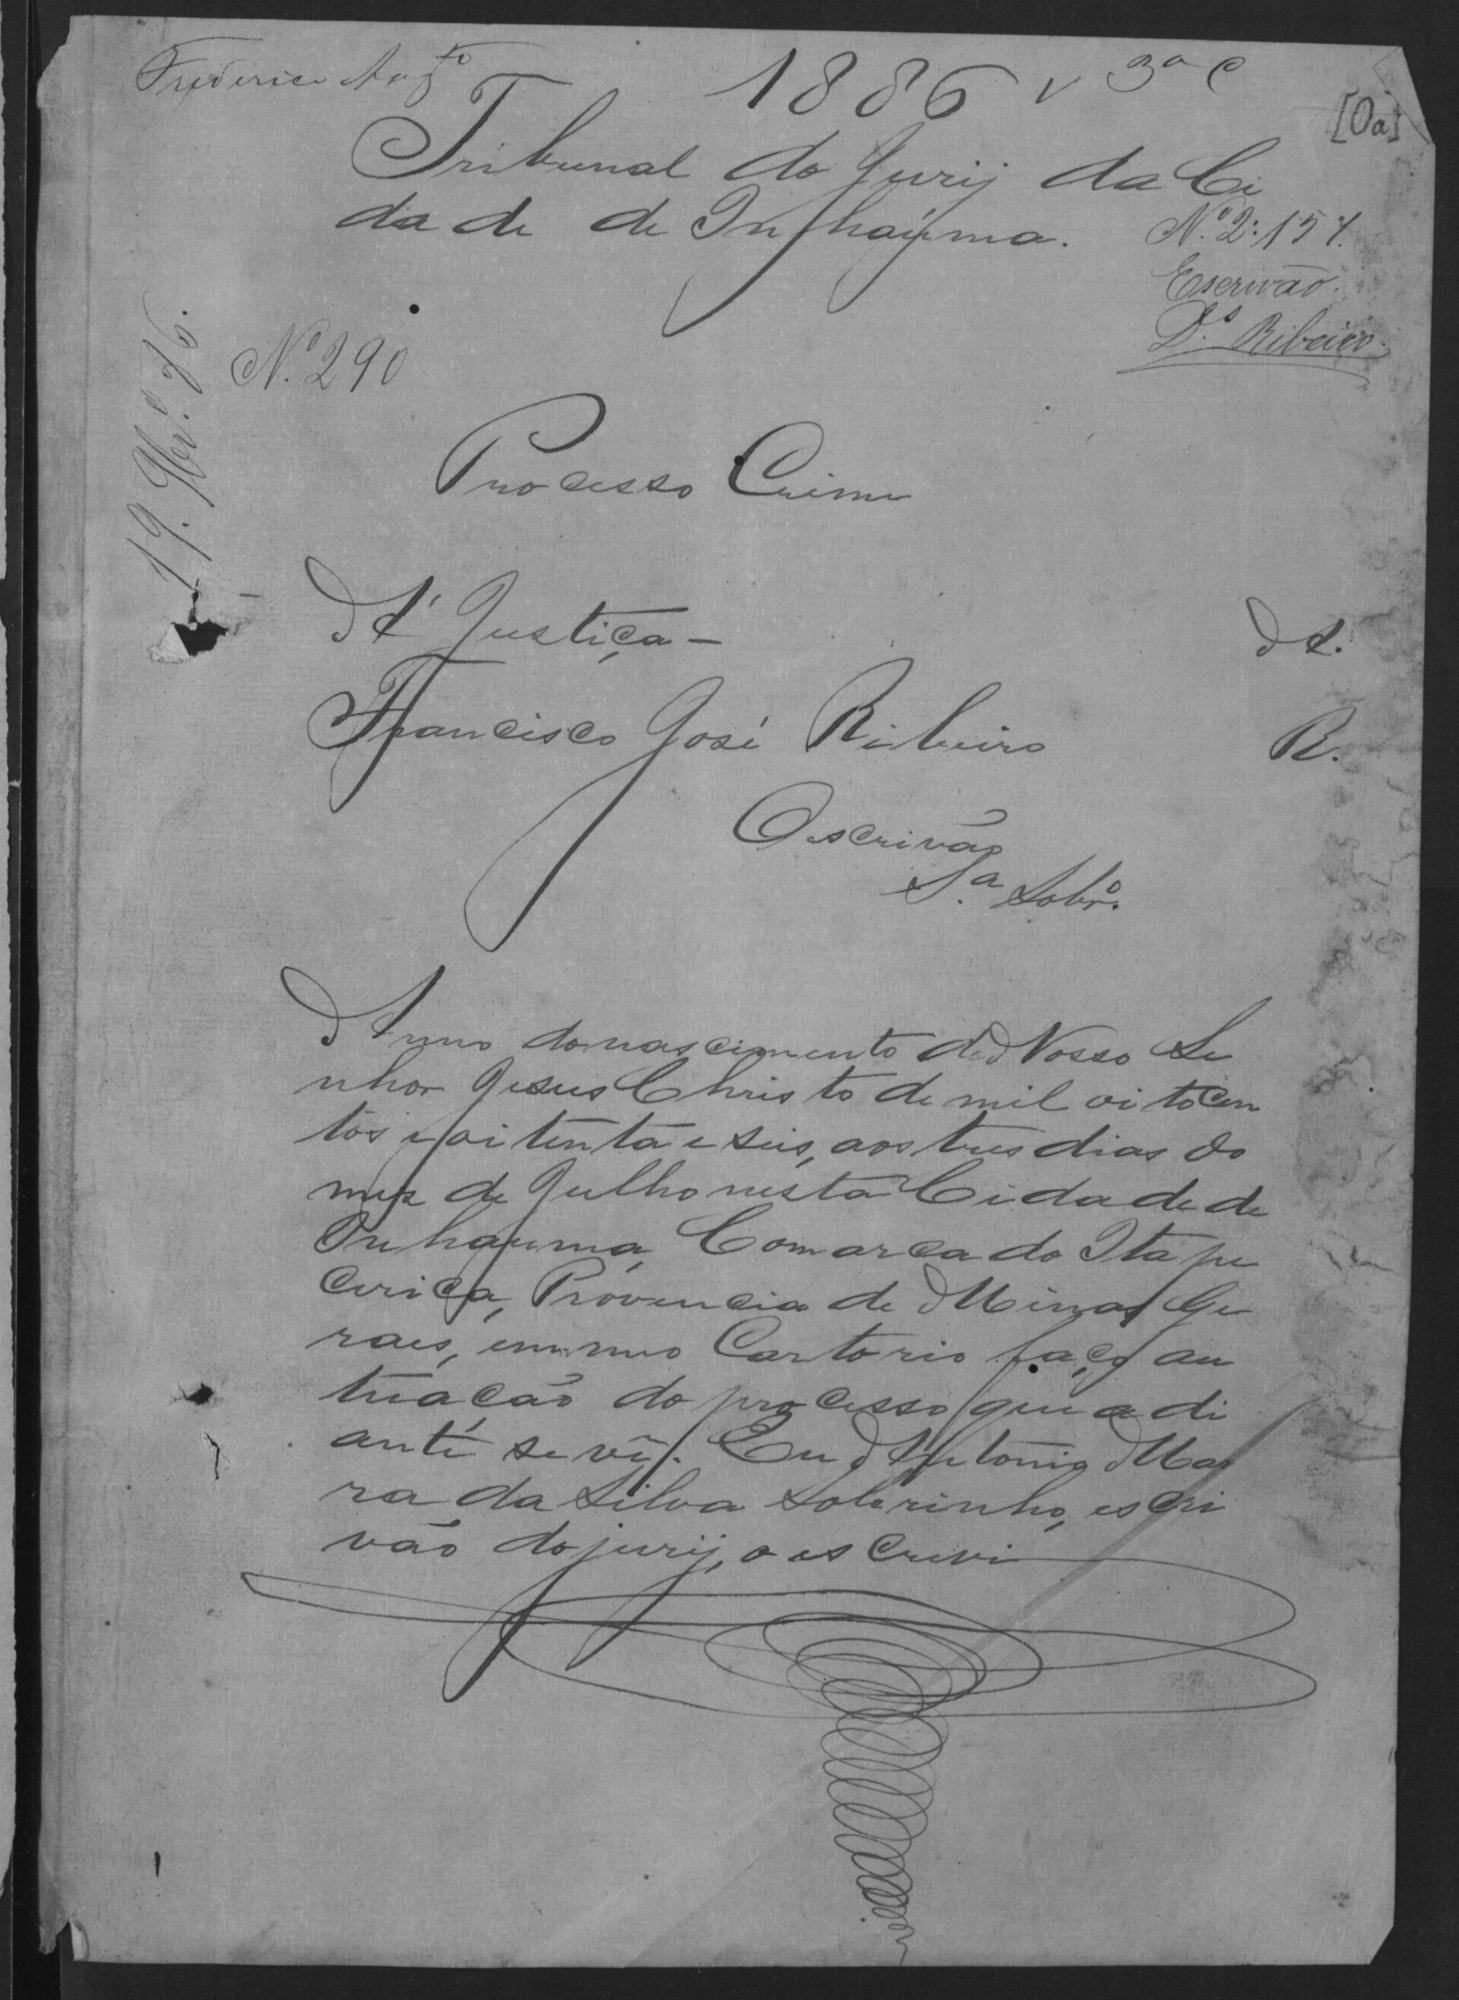 Frederico Aug.to
1886 v 3ª C
[0a]
Tribunal do Jury da Ci
dade de Inhaúma.
Nº 2:157.
Escrivão.
D.s Ribeiro.
Nº 290
19. 9br.º 86.
Processo Crime
A' Justiça - A.
Francisco José Ribeiro R.
O escrivão
S.ª Sobr.º
Anno do nascimento de Nosso Se
nhor Jesus Christo de mil oitocen
tos e oitenta e seis, aos tres dias do
mez de Julho nesta Cidade de
Inhaúma, Comarca do Itape
cerica, Provincia de Minas Ge
raes, em meo Cartorio faço au
tuação do processo que a di
ante se vê. Eu Antonio Mar
ra da Silva Sobrinho, escri
vão do jury, o escrevi